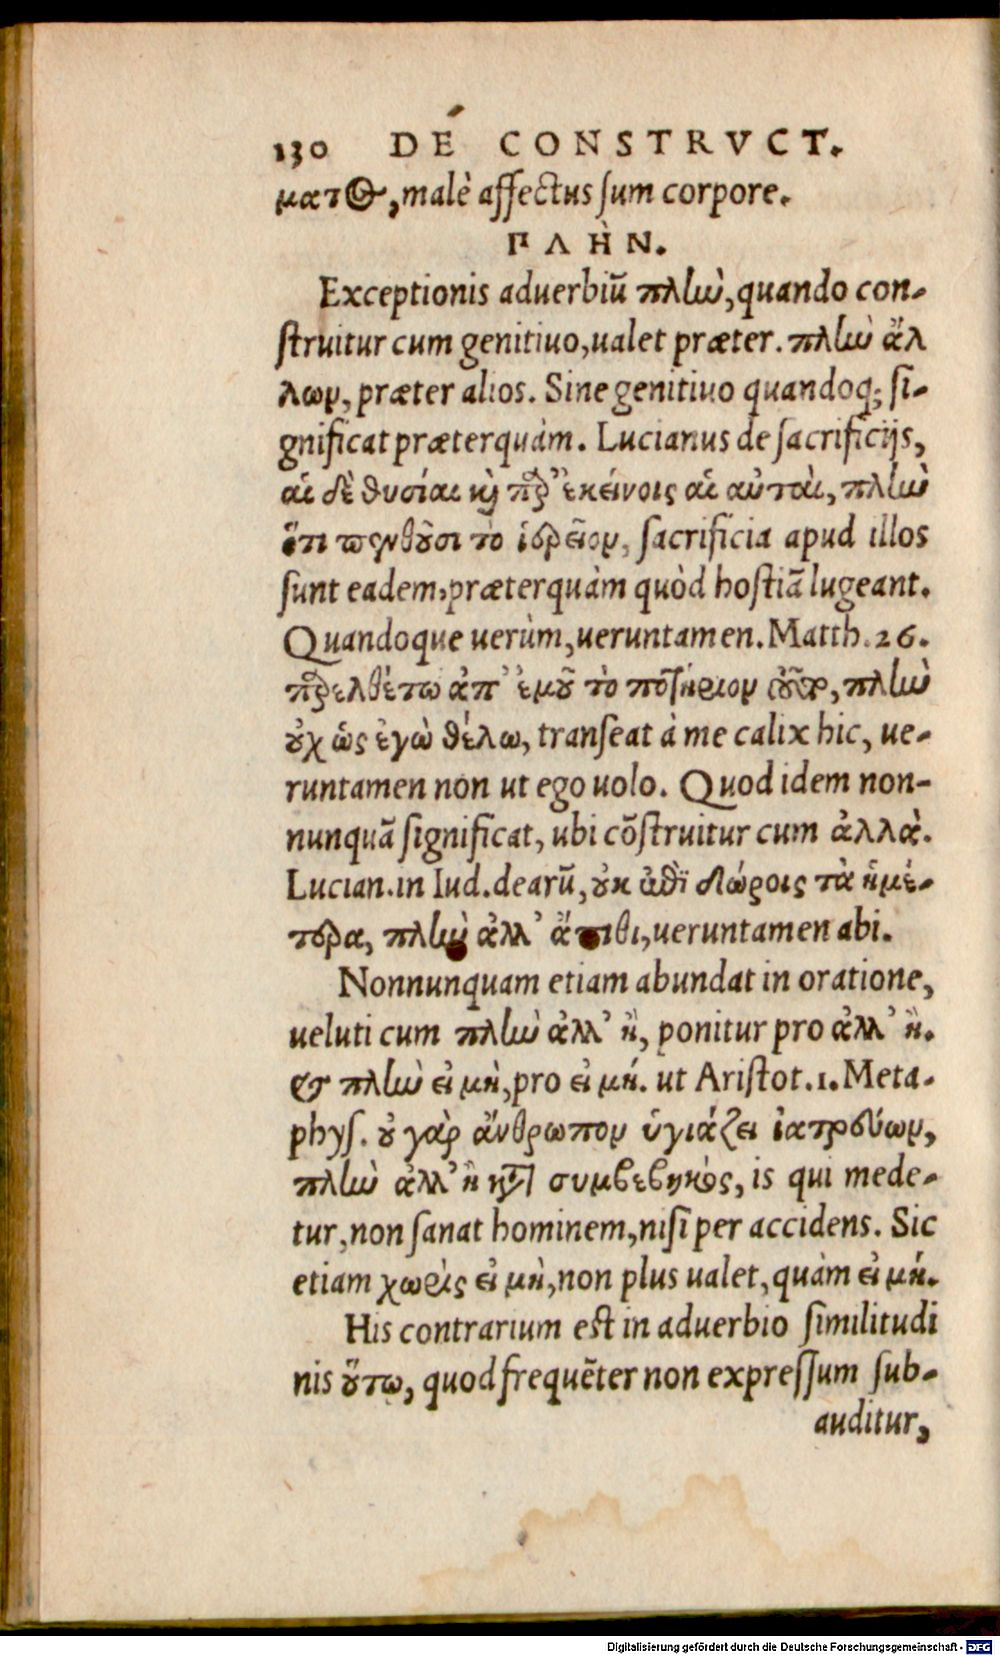 130 DE CONSTRVCT.
ματος, malè affectus sum corpore.
ΠΛῊΝ.
Exceptionis aduerbiũ πλὴν, quando con-
struitur cum genitiuo, ualet præter. πλὴν ἄλ
λων, præter alios. Sine genitiuo quandoq; si-
gnificat præterquàm. Lucianus de sacrificijs,
αἱ δὲ θυσίαι καὶ παρ' ἐκείνοις αἱ αὐταὶ, πλὴν
ὅτι πενθοῦσι τὸ ἱερεῖον, sacrificia apud illos
sunt eadem, præterquàm quòd hostiã lugeant.
Quandoque uerùm, ueruntamen. Matth. 26.
παρελθέτω ἀπ' ἐμοῦ τὸ ποτήριον τοῦτο, πλὴν
οὐχ ὡς ἐγὼ θέλω, transeat à me calix hic, ue-
runtamen non ut ego uolo. Quod idem non-
nunquã significat, ubi cõstruitur cum ἀλλὰ.
Lucian. in Iud. dearũ, οὐκ ἐπὶ δώροις τὰ ἡμέ-
τερα, πλὴν ἀλλ' ἄπιθι, ueruntamen abi.
Nonnunquam etiam abundat in oratione,
ueluti cum πλὴν ἀλλ' ἢ, ponitur pro ἀλλ' ἢ.
& πλὴν εἰ μὴ, pro εἰ μή. ut Aristot. 1. Meta-
phys. οὐ γὰρ ἄνθρωπον ὑγιάζει ἰατρεύων,
πλὴν ἀλλ' ἢ κατὰ συμβεβηκὸς, is qui mede-
tur, non sanat hominem, nisi per accidens. Sic
etiam χωρὶς εἰ μὴ, non plus ualet, quàm εἰ μή.
His contrarium est in aduerbio similitudi
nis οὕτω, quod frequẽter non expressum sub-
auditur,
Digitalisierung gefördert durch die Deutsche Forschungsgemeinschaft - DFG